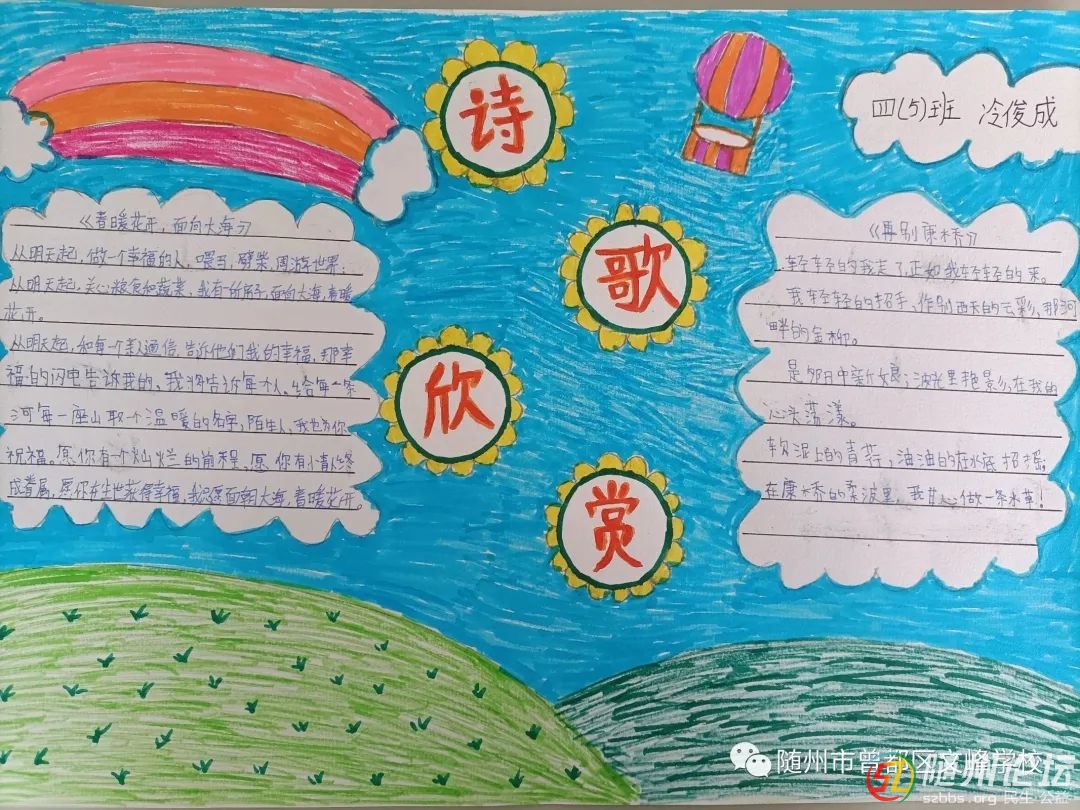 诗
歌
欣
赏
四(5)班 冷俊成
《春暖花开,面向大海》
从明天起,做一个幸福的人,喂马,劈柴,周游世界,
从明天起,关心粮食和蔬菜,我有一所房子,面向大海,春暖
花开。
从明天起,和每一个亲人通信,告诉他们我的幸福,那幸
福的闪电告诉我的,我将告诉每个人。给每一条
河每一座山取个温暖的名字,陌生人,我也为你
祝福。愿你有个灿烂的前程,愿你有情人终
成眷属,愿你在尘世获得幸福,我只愿面朝大海,春暖花开。
《再别康桥》
轻轻的我走了,正如我轻轻的来。
我轻轻的招手,作别西天的云彩,那河
畔的金柳。
是夕阳中新娘;波光里艳影,在我的
心头荡漾。
软泥上的青荇,油油的在水底招摇,
在康桥的柔波里,我甘心做一条水草!
随州市曾都区文峰学校
随州论坛
szbbs.org 民生 公益